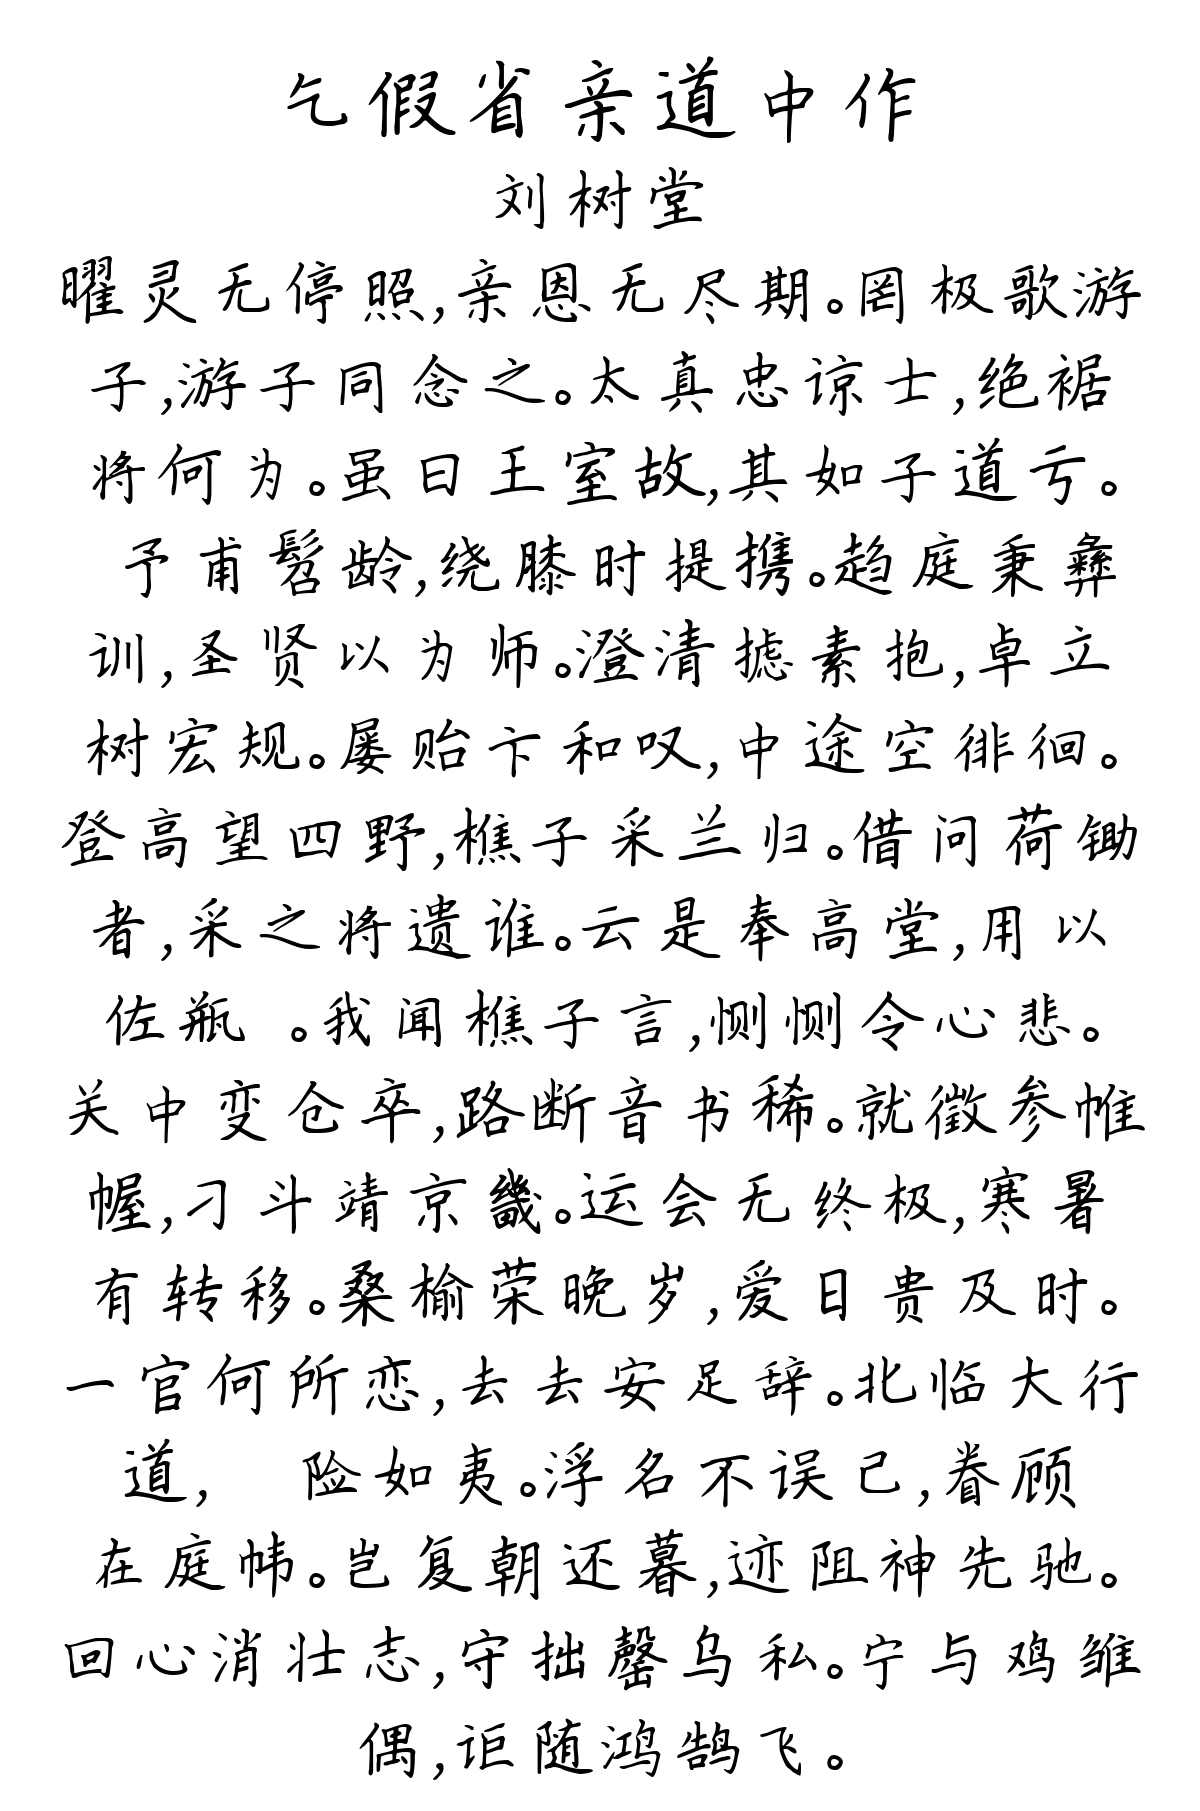 乞假省亲道中作
刘树堂
曜灵无停照,亲恩无尽期。罔极歌游
子,游子同念之。太真忠谅士,绝裾
将何为。虽曰王室故,其如子道亏。
予甫髫龄,绕膝时提携。趋庭秉彝
训,圣贤以为师。澄清摅素抱,卓立
树宏规。屡贻卞和叹,中途空徘徊。
登高望四野,樵子采兰归。借问荷锄
者,采之将遗谁。云是奉高堂,用以
佐瓶 。我闻樵子言,恻恻令心悲。
关中变仓卒,路断音书稀。就徵参帷
幄,刁斗靖京畿。运会无终极,寒暑
有转移。桑榆荣晚岁,爱日贵及时。
一官何所恋,去去安足辞。北临大行
道, 险如夷。浮名不误己,眷顾
在庭帏。岂复朝还暮,迹阻神先驰。
回心消壮志,守拙罄乌私。宁与鸡雏
偶,讵随鸿鹄飞。